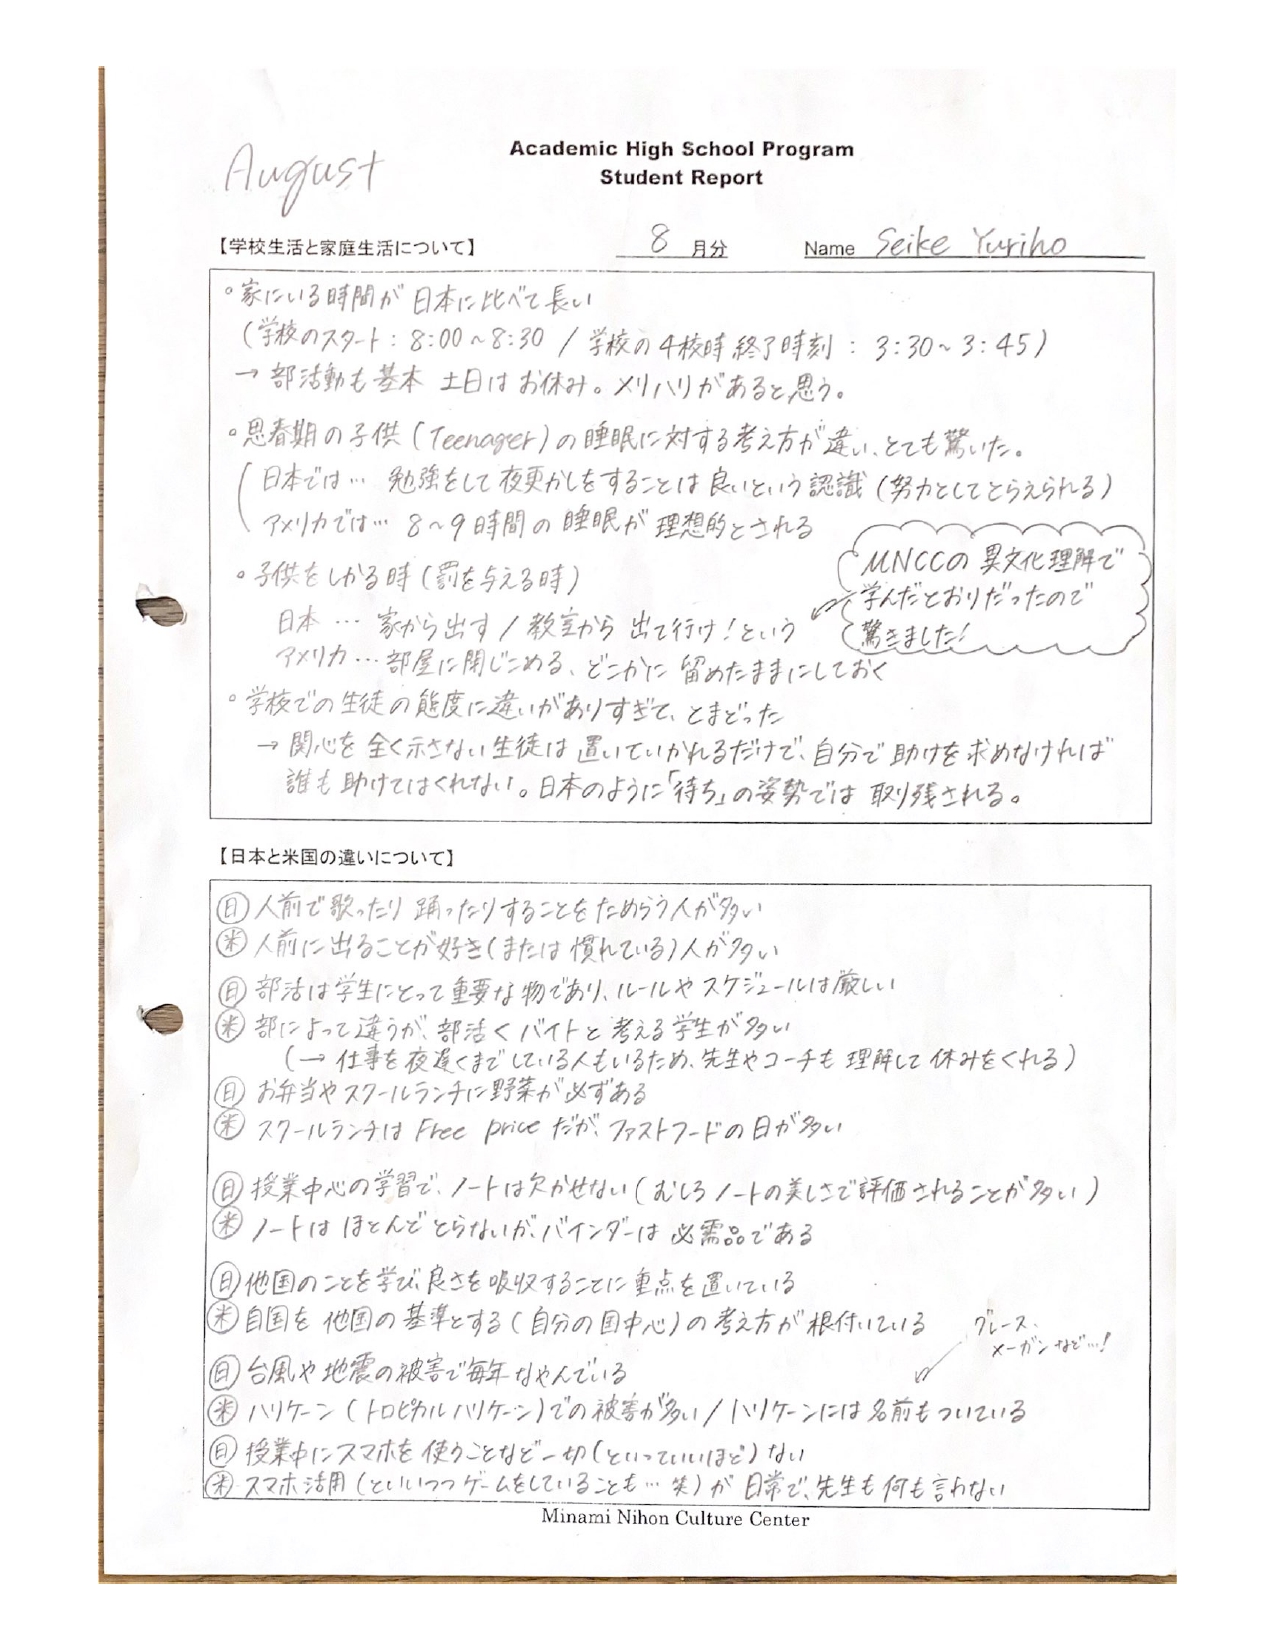 August
Academic High School Program
Student Report
【学校生活と家庭生活について】 8 月分 Name Seike Yuriho
。家にいる時間が日本に比べて長い
(学校のスタート: 8:00～8:30 / 学校の4校時終了時刻 : 3:30～3:45)
→ 部活動も基本 土日はお休み。メリハリがあると思う。
。思春期の子供(Teenager)の睡眠に対する考え方が違い、とても驚いた。
日本では… 勉強をして夜更かしをすることは良いという認識(努力としてとらえられる)
アメリカでは… 8～9時間の睡眠が理想的とされる
。子供をしかる時(罰を与える時)
日本 … 家から出す / 教室から出て行け!という
アメリカ … 部屋に閉じこめる、どこかに留めたままにしておく
MNCCの異文化理解で
学んだとおりだったので
驚きました!
。学校での生徒の態度に違いがありすぎて、とまどった
→ 関心を全く示さない生徒は置いていかれるだけで、自分で助けを求めなければ
誰も助けてはくれない。日本のように「待ち」の姿勢では取り残される。
【日本と米国の違いについて】
㊐ 人前で歌ったり踊ったりすることをためらう人が多い
米 人前に出ることが好き(または慣れている)人が多い
㊐ 部活は学生にとって重要な物であり、ルールやスケジュールは厳しい
米 部によって違うが、部活くバイトと考える学生が多い
(→ 仕事を夜遅くまでしている人もいるため、先生やコーチも理解して休みをくれる)
㊐ お弁当やスクールランチに野菜が必ずある
米 スクールランチは Free price だが、ファストフードの日が多い
㊐ 授業中心の学習で、ノートは欠かせない(むしろノートの美しさで評価されることが多い)
米 ノートはほとんどとらないが、バインダーは必需品である
㊐ 他国のことを学び、良さを吸収することに重点を置いている
米 自国を他国の基準とする(自分の国中心)の考え方が根付いている
グレース、
メーガンなど…!
㊐ 台風や地震の被害で毎年なやんでいる
米 ハリケーン(トロピカルハリケーン)での被害が多い / ハリケーンには名前もついている
㊐ 授業中にスマホを使うことなど一切(といっていいほど)ない
米 スマホ活用(といいつつゲームをしていることも… 笑)が日常で、先生も何も言わない
Minami Nihon Culture Center